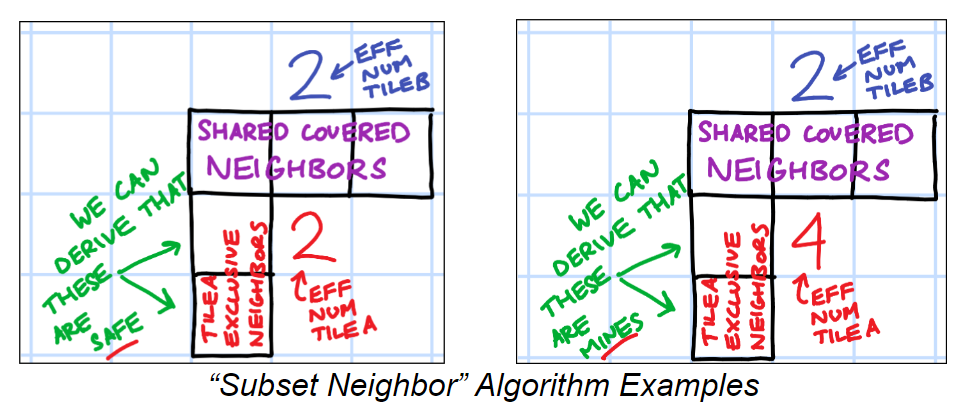 2 EFF
NUM
TILEB
SHARED COVERED
NEIGHBORS
WE CAN
DERIVE THAT
THESE
ARE SAFE
TILEA
EXCLUSIVE
NEIGHBORS
2
EFF
NUM
TILE A
2 EFF
NUM
TILEB
SHARED COVERED
NEIGHBORS
WE CAN
DERIVE THAT
THESE
ARE MINES
TILEA
EXCLUSIVE
NEIGHBORS
4
EFF
NUM
TILE A
“Subset Neighbor” Algorithm Examples